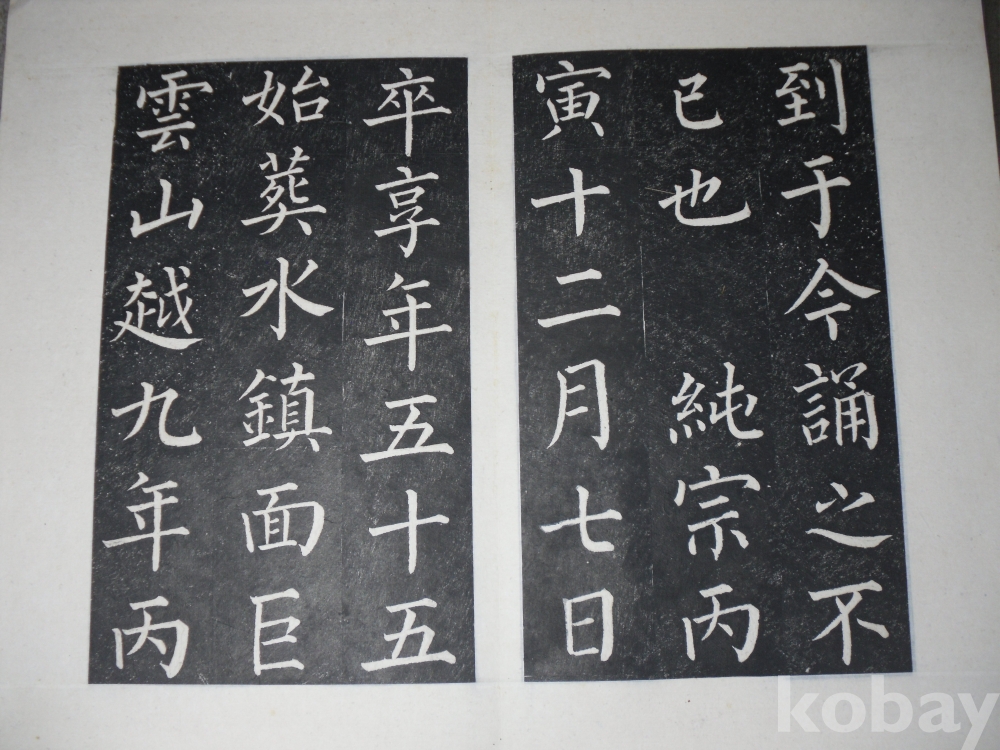 到于今誦之不
已也 純宗丙
寅十二月七日
卒享年五十五
始葬水鎮面巨
雲山越九年丙
kobay